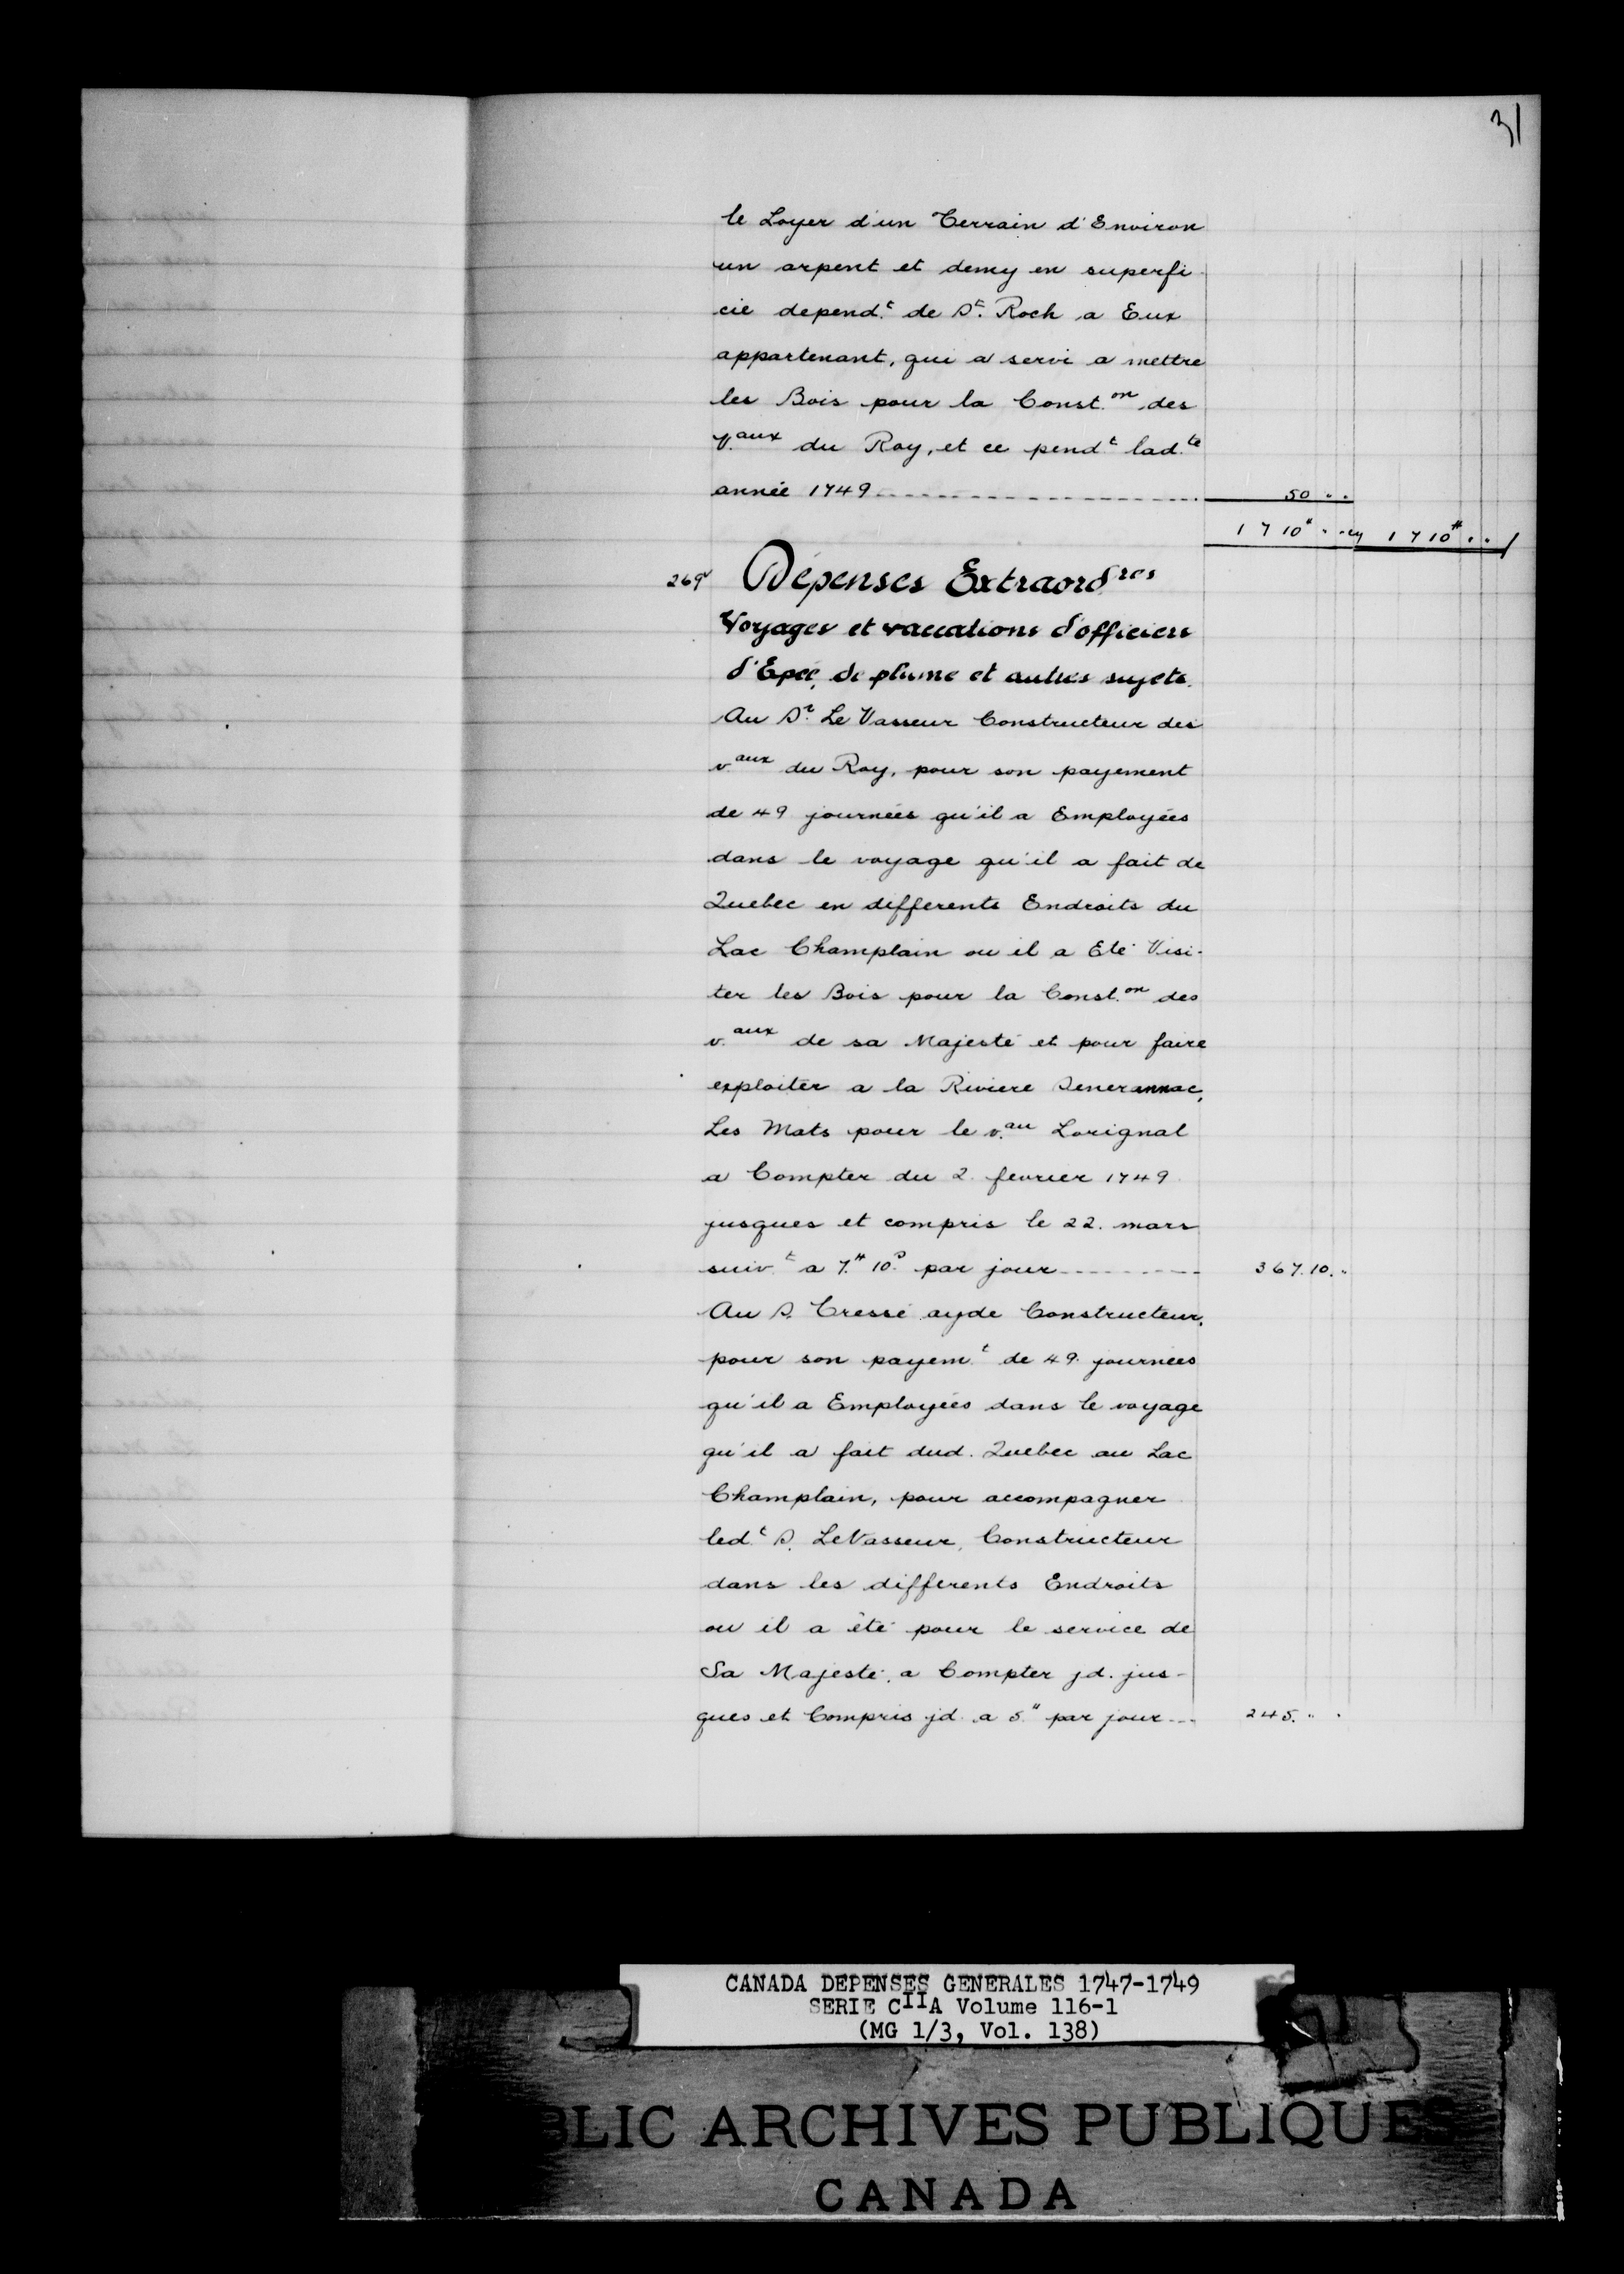 31
le Loyer d'un Terrain d'Environ
un arpent et demy en superfi-
cie depend.t de St. Roch a Eux
appartenant, qui a servi a mettre
les Bois pour la Const.on des
V.aux du Roy, et ce pend.t lad.te
année 1749 50 " "
1710# " " cy 1710# " "
269v Dépenses Extraord.res
Voyages et vaccations d'officiers
d'Epée, de plume et autres sujets.
Au Sr. Le Vasseur Constructeur des
v.aux du Roy, pour son payement
de 49 journées qu'il a Employées
dans le voyage qu'il a fait de
Quebec en differents Endroits du
Lac Champlain ou il a Eté Visi-
ter les Bois pour la Const.on des
v.aux de sa Majesté et pour faire
exploiter a la Riviere Senerannac,
Les Mats pour le v.au Lorignal
a Compter du 2 fevrier 1749
jusques et compris le 22. mars
suiv.t a 7.# 10.s par jour 367.10. "
Au S. Cressé ayde Constructeur,
pour son payem.t de 49. journées
qu'il a Employées dans le voyage
qu'il a fait dud. Quebec au Lac
Champlain, pour accompagner
led.t S. LeVasseur, Constructeur
dans les differents Endroits
ou il a été pour le service de
Sa Majesté, a Compter jd. jus-
ques et Compris jd. a 5# par jour 245. " "
CANADA DEPENSES GENERALES 1747-1749
SERIE CIIA Volume 116-1
(MG 1/3, Vol. 138)
BLIC ARCHIVES PUBLIQUES
CANADA